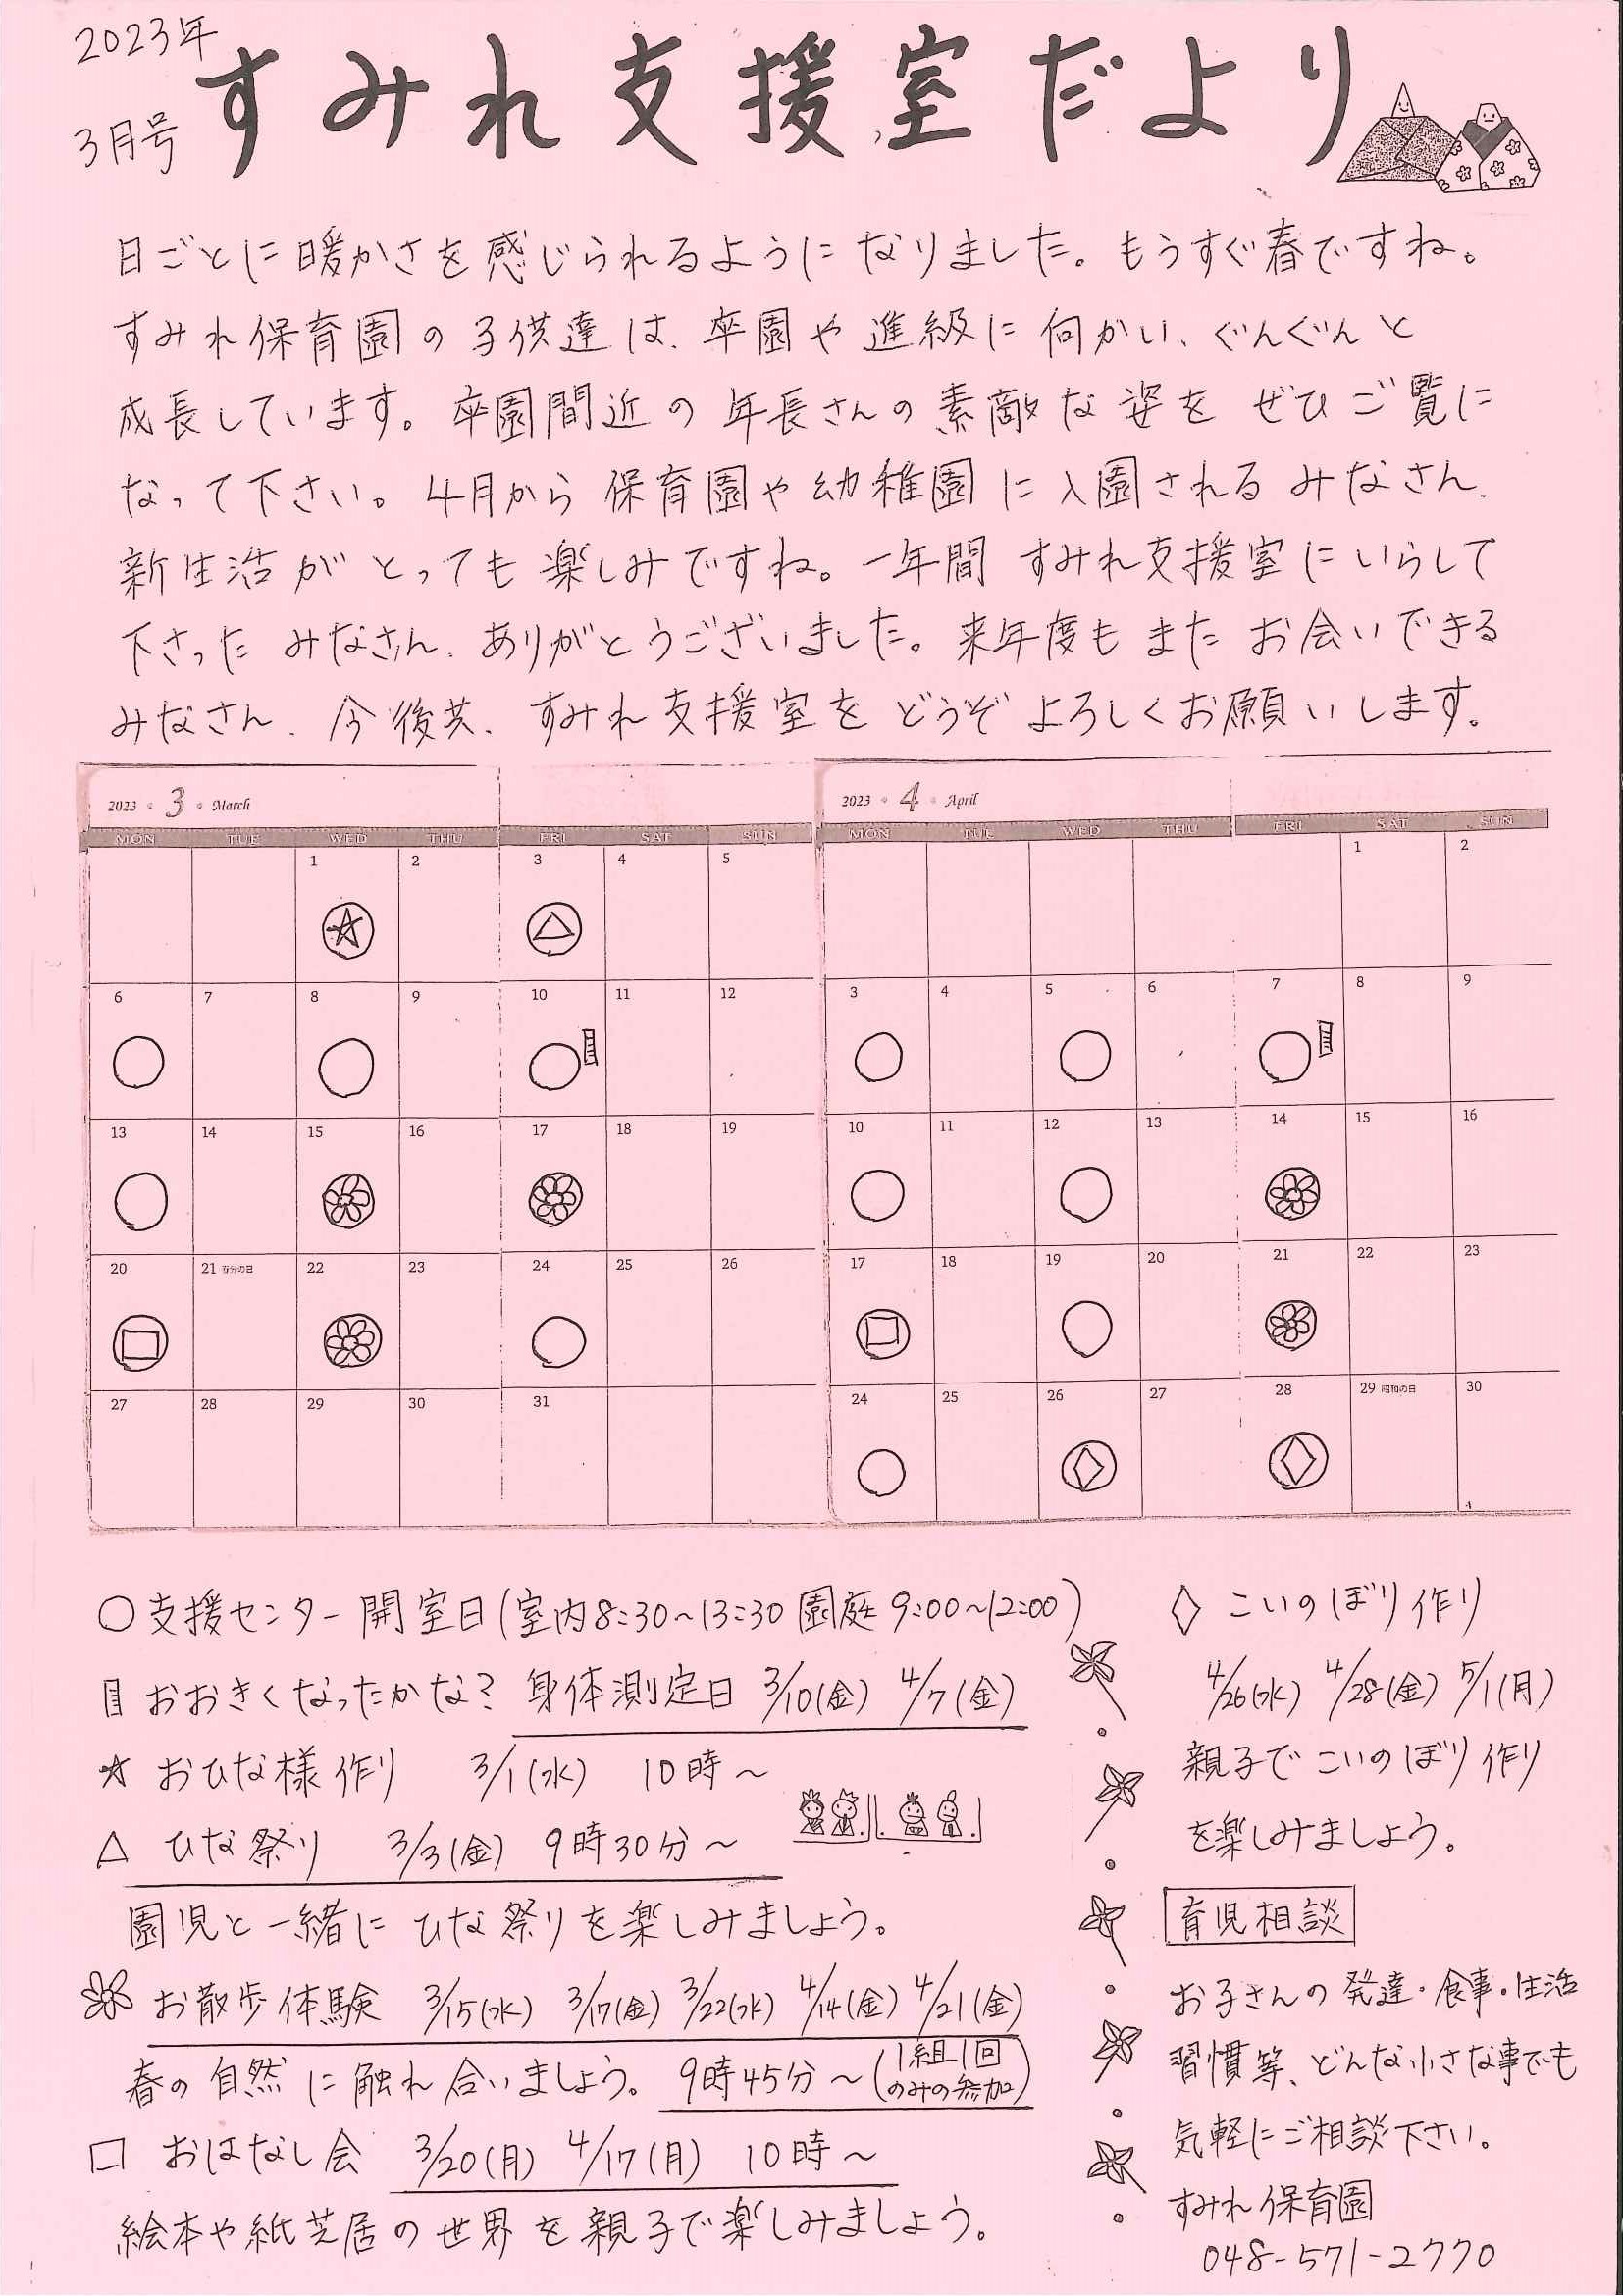 2023年
3月号
すみれ支援室だより
日ごとに暖かさを感じられるようになりました。もうすぐ春ですね。
すみれ保育園の子供達は、卒園や進級に向かい、ぐんぐんと
成長しています。卒園間近の年長さんの素敵な姿をぜひご覧に
なって下さい。4月から保育園や幼稚園に入園されるみなさん、
新生活がとっても楽しみですね。一年間すみれ支援室にいらして
下さったみなさん、ありがとうございました。来年度もまたお会いできる
みなさん、今後共、すみれ支援室をどうぞよろしくお願いします。
2023 • 3 • March
MON TUE WED THU FRI SAT SUN
1 2 3 4 5
6 7 8 9 10 11 12
13 14 15 16 17 18 19
20 21 春分の日 22 23 24 25 26
27 28 29 30 31
2023 • 4 • April
MON TUE WED THU FRI SAT SUN
1 2
3 4 5 6 7 8 9
10 11 12 13 14 15 16
17 18 19 20 21 22 23
24 25 26 27 28 29 昭和の日 30
○支援センター開室日(室内8:30~13:30 園庭9:00~12:00)
おおきくなったかな? 身体測定日 3/10(金) 4/7(金)
☆ おひな様作り 3/1(水) 10時~
△ ひな祭り 3/3(金) 9時30分~
園児と一緒にひな祭りを楽しみましょう。
お散歩体験 3/15(水) 3/17(金) 3/22(水) 4/14(金) 4/21(金)
春の自然に触れ合いましょう。9時45分~(1組1回
のみの参加)
□ おはなし会 3/20(月) 4/17(月) 10時~
絵本や紙芝居の世界を親子で楽しみましょう。
◇ こいのぼり作り
4/26(水) 4/28(金) 5/1(月)
親子でこいのぼり作り
を楽しみましょう。
育児相談
お子さんの発達・食事・生活
習慣等、どんな小さな事でも
気軽にご相談下さい。
すみれ保育園
048-571-2770